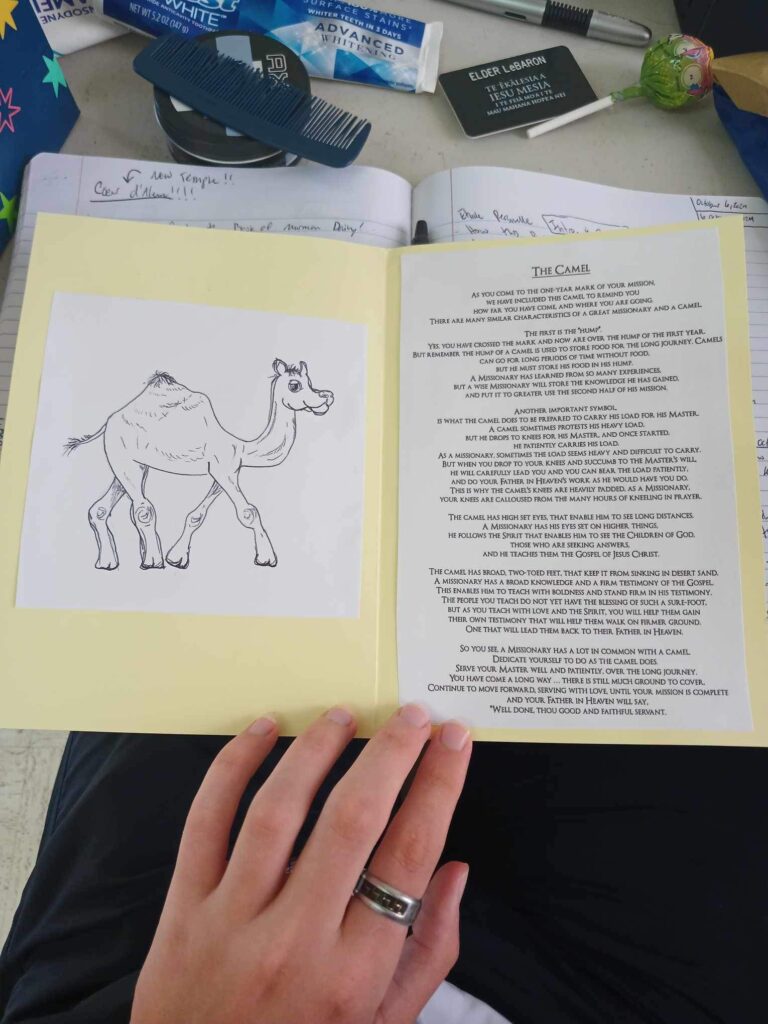 SODYNE
NET WT 5.2 OZ (147g)
WHITE
SURFACE STAINS*
WHITER TEETH IN 3 DAYS
ADVANCED
WHITENING
ELDER LeBARON
TE EKĀLESIA A
IESU MESIA
I TE FEIA MO'A I TE
MAU MAHANA HOPEA NEI
New Temple!!
Coeur d'Alene!!!!
Book of Mormon Daily!
THE CAMEL
AS YOU COME TO THE ONE-YEAR MARK OF YOUR MISSION,
WE HAVE INCLUDED THIS CAMEL TO REMIND YOU
HOW FAR YOU HAVE COME, AND WHERE YOU ARE GOING.
THERE ARE MANY SIMILAR CHARACTERISTICS OF A GREAT MISSIONARY AND A CAMEL.
THE FIRST IS THE "HUMP".
YES, YOU HAVE CROSSED THE MARK AND NOW ARE OVER THE HUMP OF THE FIRST YEAR.
BUT REMEMBER THE HUMP OF A CAMEL IS USED TO STORE FOOD FOR THE LONG JOURNEY. CAMELS
CAN GO FOR LONG PERIODS OF TIME WITHOUT FOOD,
BUT HE MUST STORE HIS FOOD IN HIS HUMP.
A MISSIONARY HAS LEARNED FROM SO MANY EXPERIENCES,
BUT A WISE MISSIONARY WILL STORE THE KNOWLEDGE HE HAS GAINED,
AND PUT IT TO GREATER USE THE SECOND HALF OF HIS MISSION.
ANOTHER IMPORTANT SYMBOL,
IS WHAT THE CAMEL DOES TO BE PREPARED TO CARRY HIS LOAD FOR HIS MASTER.
A CAMEL SOMETIMES PROTESTS HIS HEAVY LOAD,
BUT HE DROPS TO KNEES FOR HIS MASTER, AND ONCE STARTED,
HE PATIENTLY CARRIES HIS LOAD.
AS A MISSIONARY, SOMETIMES THE LOAD SEEMS HEAVY AND DIFFICULT TO CARRY.
BUT WHEN YOU DROP TO YOUR KNEES AND SUCCUMB TO THE MASTER'S WILL,
HE WILL CAREFULLY LEAD YOU AND YOU CAN BEAR THE LOAD PATIENTLY,
AND DO YOUR FATHER IN HEAVEN'S WORK AS HE WOULD HAVE YOU DO.
THIS IS WHY THE CAMEL'S KNEES ARE HEAVILY PADDED, AS A MISSIONARY,
YOUR KNEES ARE CALLOUSED FROM THE MANY HOURS OF KNEELING IN PRAYER.
THE CAMEL HAS HIGH SET EYES, THAT ENABLE HIM TO SEE LONG DISTANCES.
A MISSIONARY HAS HIS EYES SET ON HIGHER THINGS,
HE FOLLOWS THE SPIRIT THAT ENABLES HIM TO SEE THE CHILDREN OF GOD,
THOSE WHO ARE SEEKING ANSWERS,
AND HE TEACHES THEM THE GOSPEL OF JESUS CHRIST.
THE CAMEL HAS BROAD, TWO-TOED FEET, THAT KEEP IT FROM SINKING IN DESERT SAND.
A MISSIONARY HAS A BROAD KNOWLEDGE AND A FIRM TESTIMONY OF THE GOSPEL.
THIS ENABLES HIM TO TEACH WITH BOLDNESS AND STAND FIRM IN HIS TESTIMONY.
THE PEOPLE YOU TEACH DO NOT YET HAVE THE BLESSING OF SUCH A SURE-FOOT,
BUT AS YOU TEACH WITH LOVE AND THE SPIRIT, YOU WILL HELP THEM GAIN
THEIR OWN TESTIMONY THAT WILL HELP THEM WALK ON FIRMER GROUND.
ONE THAT WILL LEAD THEM BACK TO THEIR FATHER IN HEAVEN.
SO YOU SEE, A MISSIONARY HAS A LOT IN COMMON WITH A CAMEL.
DEDICATE YOURSELF TO DO AS THE CAMEL DOES.
SERVE YOUR MASTER WELL AND PATIENTLY, OVER THE LONG JOURNEY.
YOU HAVE COME A LONG WAY ... THERE IS STILL MUCH GROUND TO COVER.
CONTINUE TO MOVE FORWARD, SERVING WITH LOVE, UNTIL YOUR MISSION IS COMPLETE
AND YOUR FATHER IN HEAVEN WILL SAY,
"WELL DONE, THOU GOOD AND FAITHFUL SERVANT.